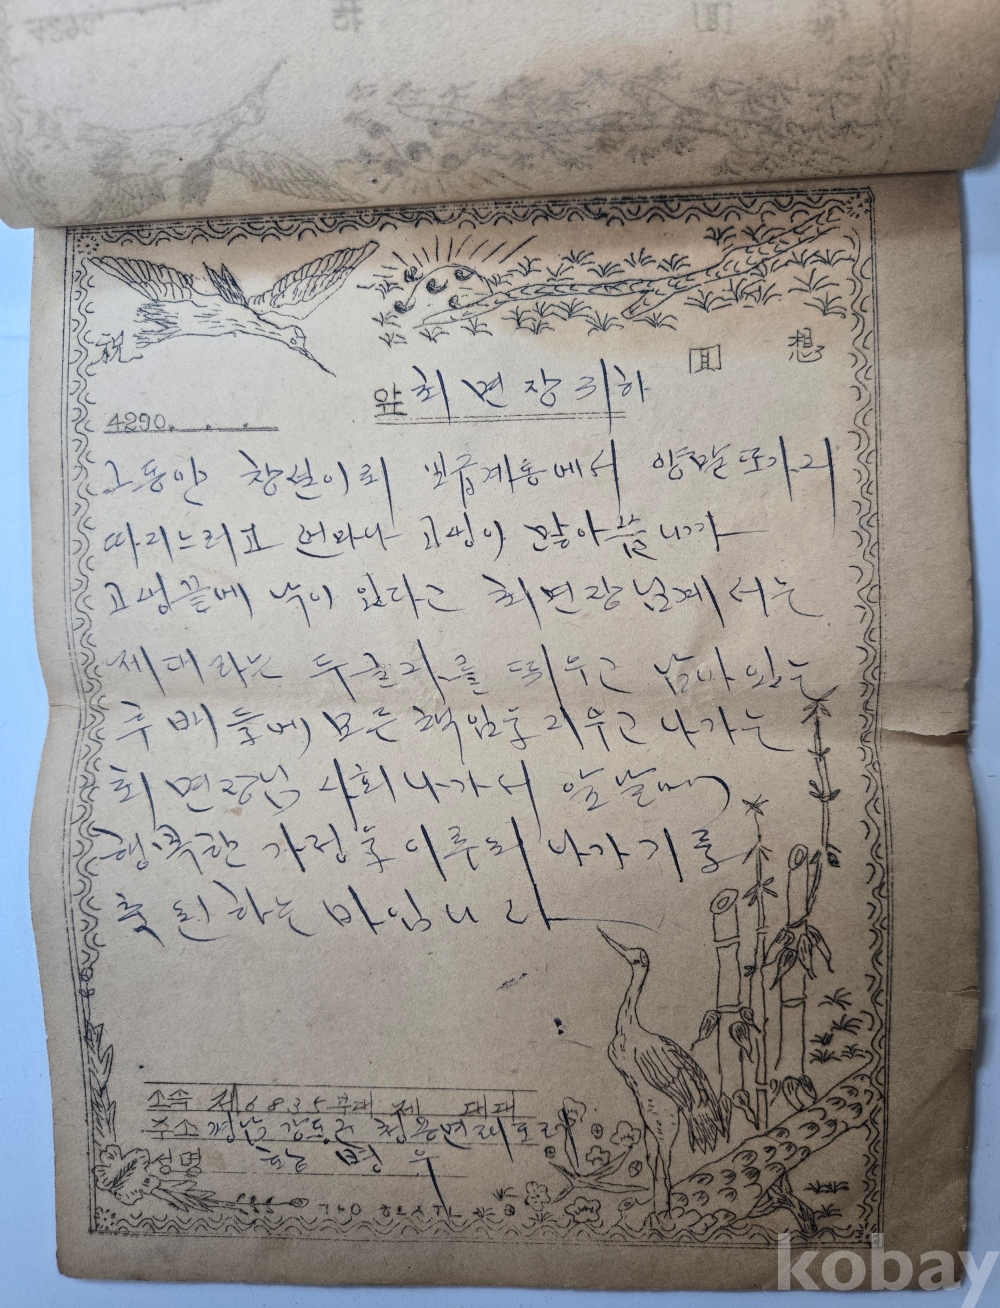 祝
回 想
4290. . . .
앞 최 면 장 귀하
그동안 창설이뢰 보급계통에서 양말 또가리
따리느라고 얼마나 고생이 많아씀니까
고생끝에 낙이 있다고 최면장님께서는
제대라는 두글자를 띄우고 남아있는
후배들에 모든 책임을 지우고 나가는
최면장님 사회나가서 앞날에
행복한 가정을 이루워 나가기를
축원하는 바임니다
소속 제6835부대 제 대대
주소 경남
성명 한 병 우
kobay